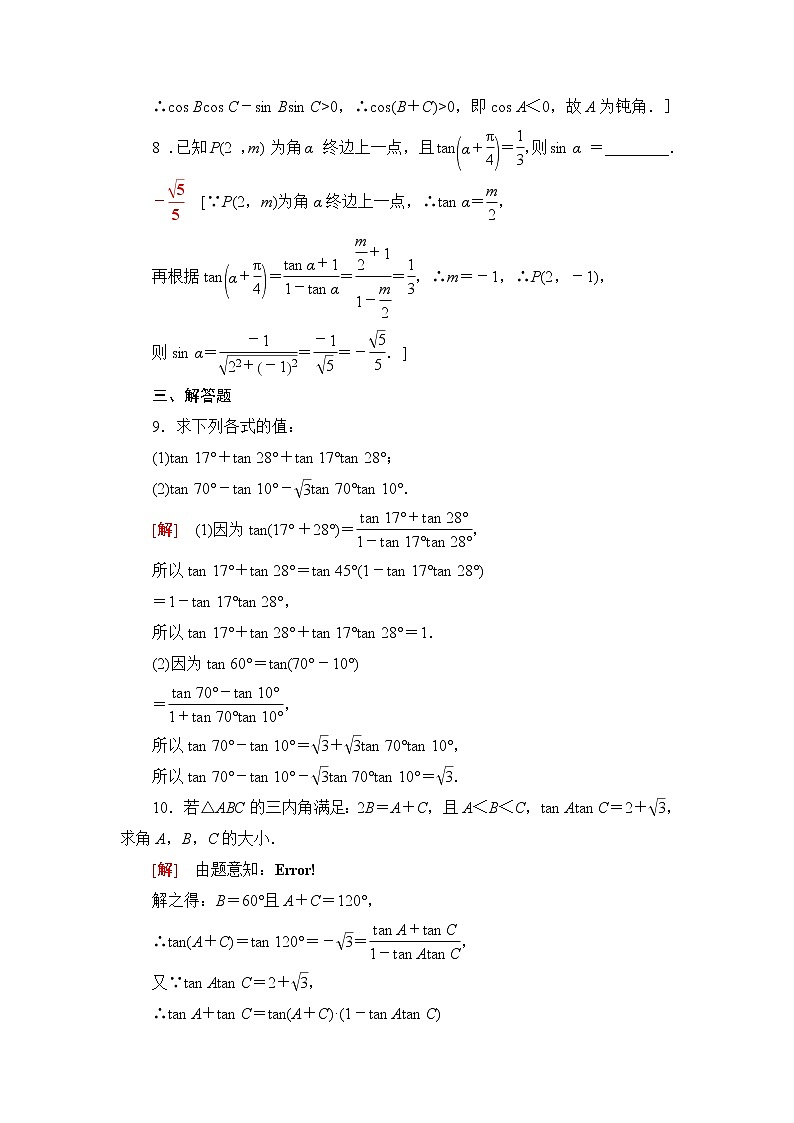 ∴cos Bcos C－sin Bsin C>0，∴cos(B＋C)>0，即 cos A＜0，故 A 为钝角．]
8 .已知 P(2 ,m) 为角 α 终边上一点，且 tan(α＋π/4)＝1/3,则 sin α ＝________.
－√5/5 [∵P(2，m)为角 α 终边上一点，∴tan α＝m/2，
再根据 tan(α＋π/4)＝(tan α＋1)/(1－tan α)＝(m/2＋1)/(1－m/2)＝1/3，∴m＝－1，∴P(2，－1)，
则 sin α＝－1/√(2²＋(－1)²)＝－1/√5＝－√5/5．]
三、解答题
9．求下列各式的值：
(1)tan 17°＋tan 28°＋tan 17°tan 28°；
(2)tan 70°－tan 10°－√3tan 70°tan 10°.
[解] (1)因为 tan(17°＋28°)＝(tan 17°＋tan 28°)/(1－tan 17°tan 28°)，
所以 tan 17°＋tan 28°＝tan 45°(1－tan 17°tan 28°)
＝1－tan 17°tan 28°，
所以 tan 17°＋tan 28°＋tan 17°tan 28°＝1.
(2)因为 tan 60°＝tan(70°－10°)
＝(tan 70°－tan 10°)/(1＋tan 70°tan 10°)，
所以 tan 70°－tan 10°＝√3＋√3tan 70°tan 10°，
所以 tan 70°－tan 10°－√3tan 70°tan 10°＝√3.
10．若△ABC 的三内角满足：2B＝A＋C，且 A＜B＜C，tan Atan C＝2＋√3，
求角 A，B，C 的大小．
[解] 由题意知：Error!
解之得：B＝60°且 A＋C＝120°，
∴tan(A＋C)＝tan 120°＝－√3＝(tan A＋tan C)/(1－tan Atan C)，
又∵tan Atan C＝2＋√3，
∴tan A＋tan C＝tan(A＋C)·(1－tan Atan C)